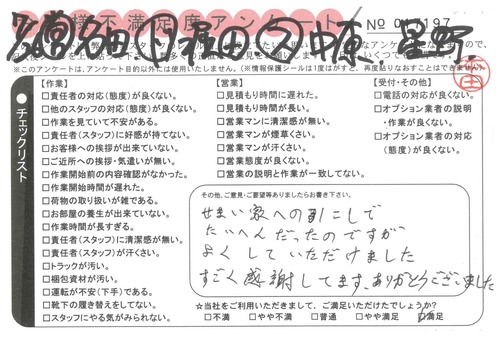 お客様不満足度アンケート
№ 017197
※このアンケートは、アンケート目的以外には使用いたしません。(※情報保護シールは1度はがすと、再度貼りなおすことはできません。)
チェックリスト
【作業】
□責任者の対応(態度)が良くない。
□他のスタッフの対応(態度)が良くない。
□作業を見ていて不安がある。
□責任者(スタッフ)に好感が持てない。
□お客様への挨拶が出来ていない。
□ご近所への挨拶・気遣いが無い。
□作業開始前の内容確認がなかった。
□作業開始時間が遅れた。
□荷物の取り扱いが雑である。
□お部屋の養生が出来ていない。
□作業時間が長すぎる。
□責任者(スタッフ)に清潔感が無い。
□責任者(スタッフ)が汗くさい。
□トラックが汚い。
□梱包資材が汚い。
□運転が不安(下手)である。
□靴下の履き替えをしてない。
□スタッフにやる気がみられない。
【営業】
□見積もり時間に遅れた。
□見積もり時間が長い。
□営業マンに清潔感が無い。
□営業マンが煙草くさい。
□営業マンが汗くさい。
□営業態度が良くない。
□営業の説明と作業が一致してない。
【受付・その他】
□電話の対応が良くない。
□オプション業者の説明
・作業が良くない。
□オプション業者の対応
(態度)が良くない。
その他、ご意見・ご要望等ありましたらお書き下さい。
せまい家への引こしで
たいへんだったのですが
よくしていただけました
すごく感謝してます、ありがとうございました
☆当社をご利用いただきまして、ご満足いただけたでしょうか?
□不満 □やや不満 □普通 □やや満足 □満足
福田
中原、星野